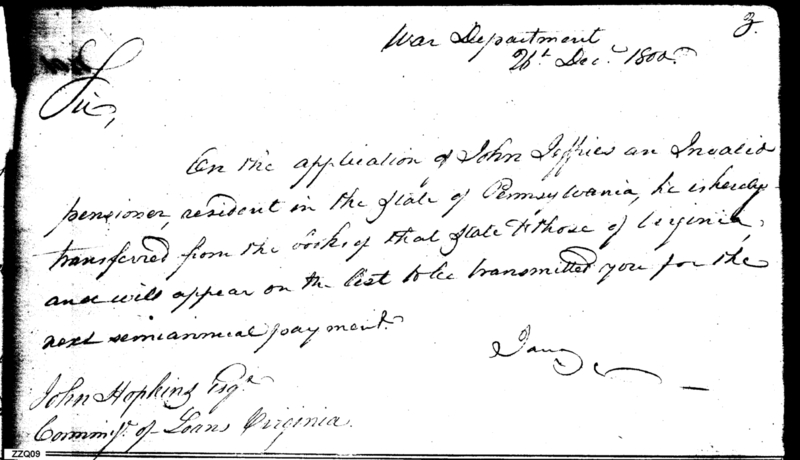 3.
War Department
26th Decr. 1800.
Sir,
On the application of John Jeffries an Invalid
pensioner, resident in the State of Pennsylvania, he is hereby
transferred from the books of that State to those of Virginia,
and will appear on the list to be transmitted you for the
next semiannual payment.
I am &c
John Hopkins Esqr.
Commissr. of Loans Virginia.
ZZQ09